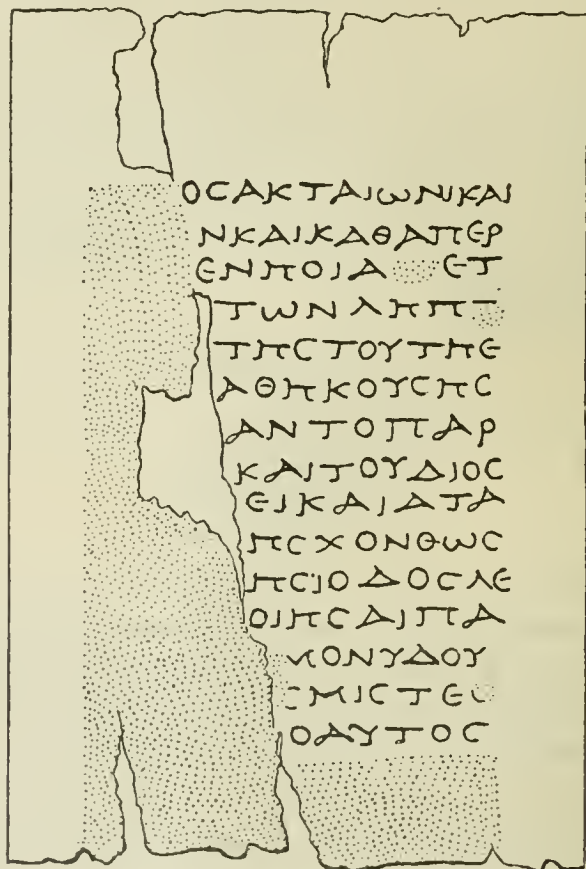 ΟϹΑΚΤΑΙΩΝΙΚΑΙ
ΝΚΑΙΚΑΘΑΠΕΡ
ΕΝΗΟΙΑ ΕΤ
ΤΩΝΛΗΠΤ
ΤΗϹΤΟΥΤΗΕ
ΑΘΗΚΟΥϹΗϹ
ΑΝΤΟΠΑΡ
ΚΑΙΤΟΥΔΙΟϹ
ΕΙΚΑΙΑΤΑ
ΗϹΧΟΝΘΩϹ
ΗϹΙΟΔΟϹΛΕ
ΟΙΗϹΑΙΠΑ
ΟΝΥΔΟΥ
ΜΙϹΤΕ
ΟΑΥΤΟϹ